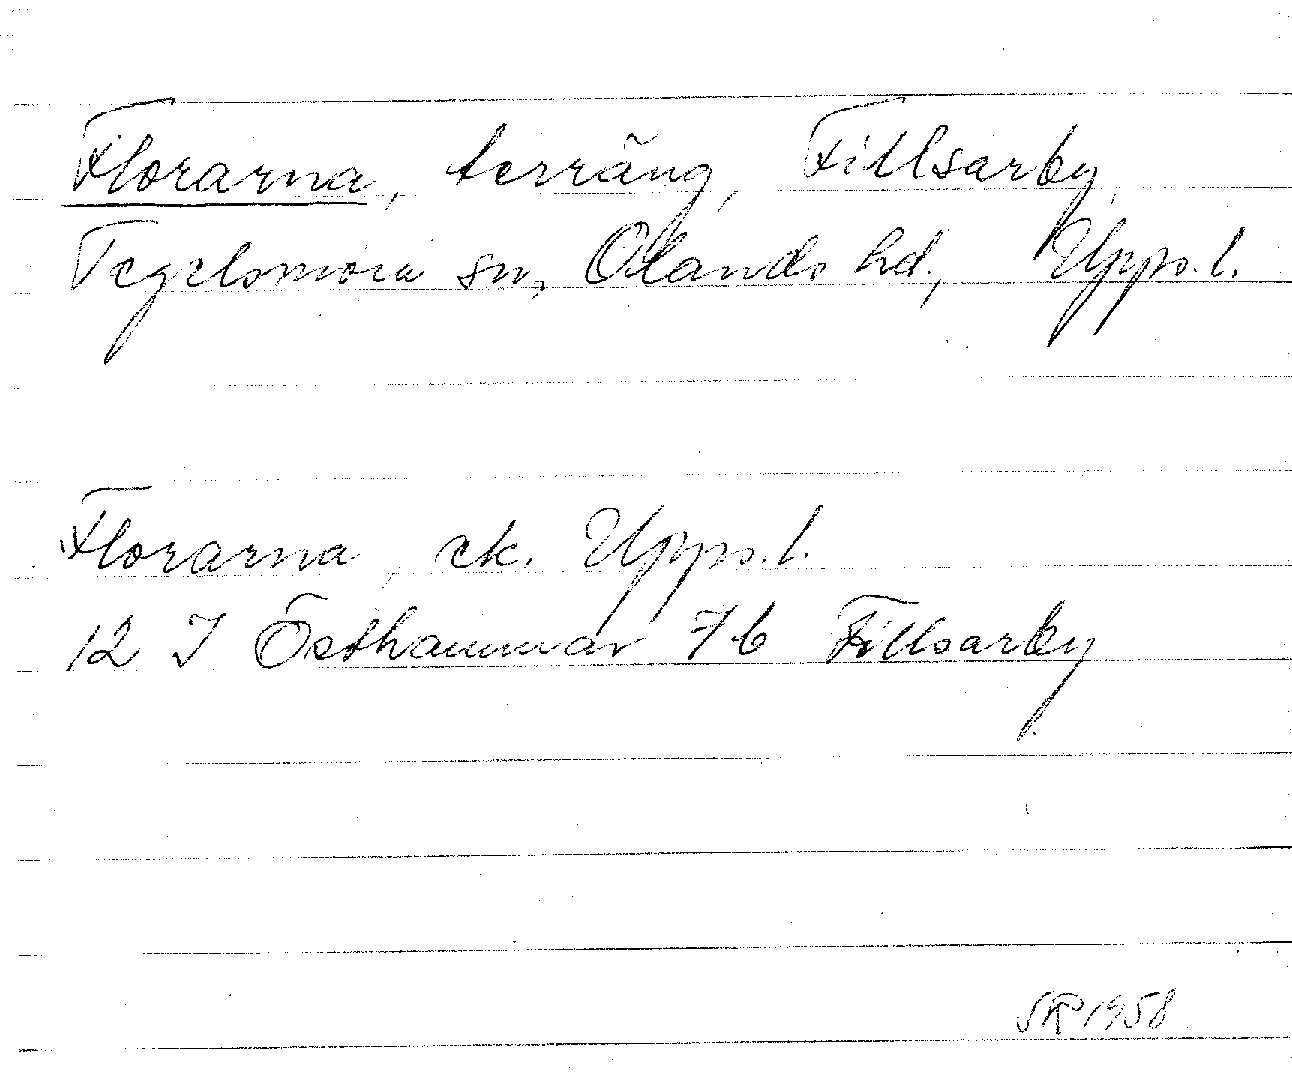 Florarna, terräng, Fillsarby,
Tegelsmora sn, Olands hd., Upps. l.
Florarna, ek. Upps. l.
12 I Östhammar 7b Fillsarby
1958